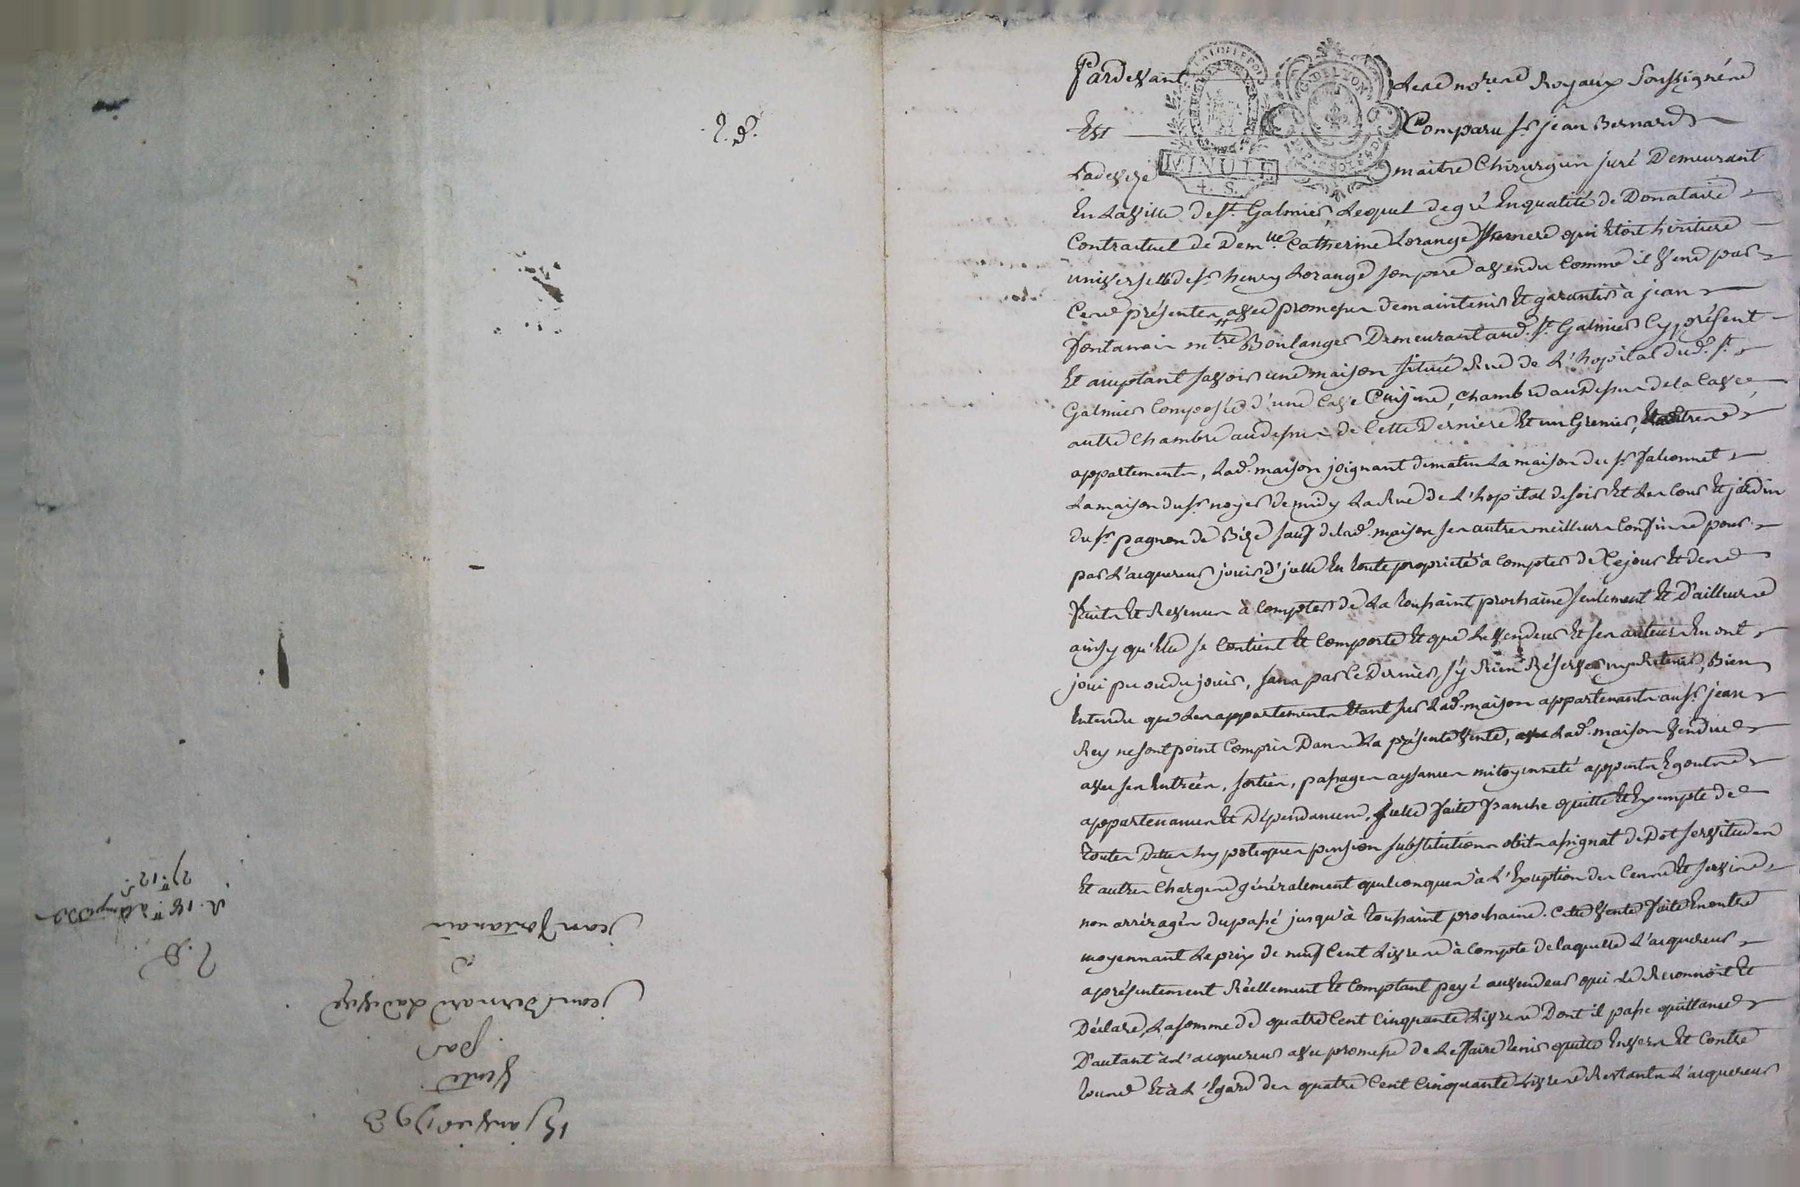 Pardevant Les no.res Royaux Soussignés
Est Comparu Sr jean Bernard
Ladeveze maitre Chirurgien juré Demeurant
En La ville de St. Galmier, Lequel de gré En qualité de Donataire
Contractuel de Dem.lle Catherine Lorange qui Etoit héritiere
universelle de Sr henry Lorange son pere a vendu Comme il Vend par
Ces présentes avec promesse de maintenir Et garantir à jean
fontanay m.tre Boulanger Demeurant aud. St. Galmier Cy présent
Et acceptant savoir une maison située Rue de L'hopital dud. St.
Galmier Composée d'une Cave Cuisine, Chambre au Dessus de la Cave,
autre Chambre au dessus de Cette Derniere Et un Grenier,
appartements, Lad. maison joignant de matin La maison du Sr falconnet
La maison du Sr noyer de midy La Rue de L'hopital de soir Et Les Cour Et jardin
du Sr pagnon de Bize sauf de lad. maison ses autres meilleurs Confins pour
par L'acquereur jouir d'jcelle En toute proprieté à Compter de Ce jour Et des
fruits Et Revenus à Compter de La Toussaint prochaine seulement Et D'ailleurs
ainsy qu'Elle se Contient Et Comporte Et que Le Vendeur Et ses auteurs En ont
joui pu ou du jouir, sans par Ce Dernier s'y Rien Réserver ny Retenir, Bien
Entendu que Les appartements Etant sur Lad. maison appartenants au Sr jean
Rey ne sont point Compris Dans La présente Vente, Lad. maison Vendue
avec ses Entrées, sorties, passages aysances mitoyenneté Egouts
appartenances Et Dépendances, jcelle faite franche quitte Et Exempte de
toutes Dettes hypoteques pension substitutions obits assignat de Dot servitudes
Et autres Charges généralement quelconques à L'Exeption des Cens Et servis
non arrérages du passé jusqu'à Toussaint prochaine. Cette Vente faite En outre
moyennant Le prix de neuf Cent Livres à Compte de laquelle L'acquereur
a présentement Réellement Et Comptant payé au vendeur qui Le Reconnoit Et
Déclare, La somme de quatre Cent Cinquante Livres Dont il passe quittance
D'autant à L'acquereur avec promesse de Le faire tenir quitte Envers Et Contre
tous Et à L'Egard des quatre Cent Cinquante Livres Restants L'acquereur
MINUTE
4. S.
15 janvier 1793
Vente
par
jean Bernard Ladeveze
à
jean fontanay